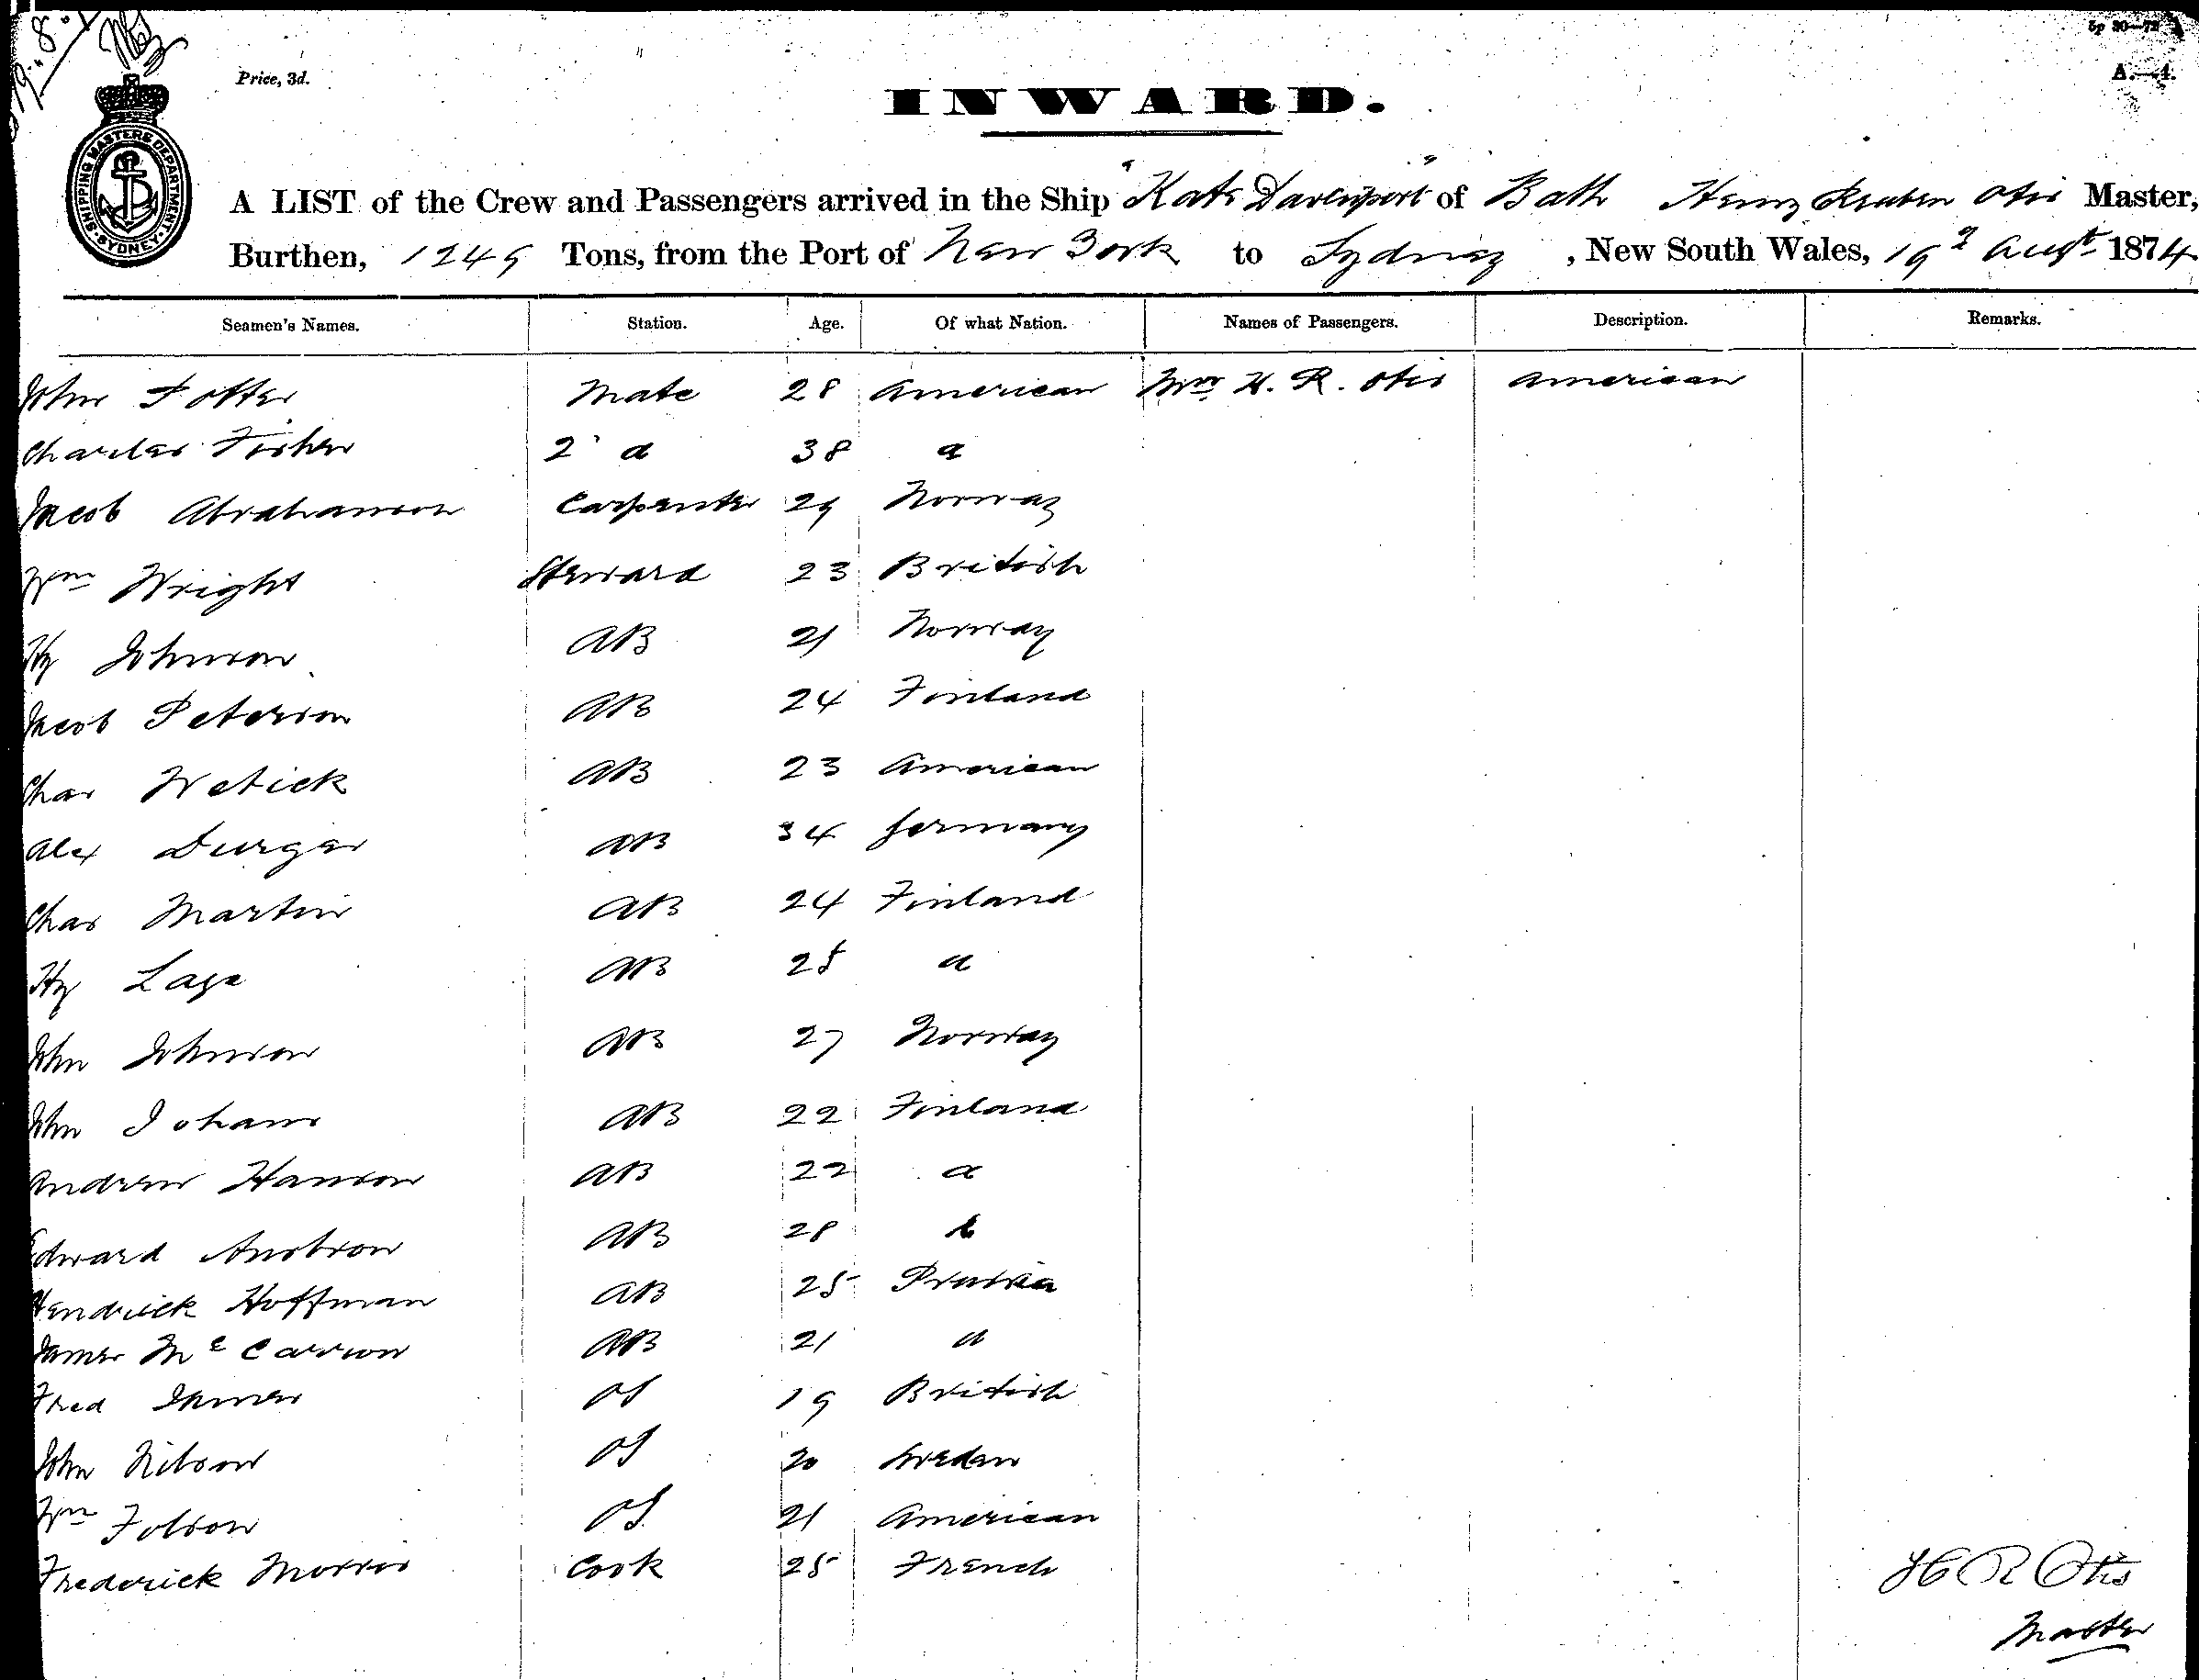 Price, 3d.
A.—4.
INWARD.
SHIPPING MASTERS DEPARTMENT SYDNEY
A LIST of the Crew and Passengers arrived in the Ship "Kate Davenport" of Bath Henry Reuben Otis Master,
Burthen, 1249 Tons, from the Port of New York to Sydney, New South Wales, 19 Augt 1874
Seamen's Names. Station. Age. Of what Nation. Names of Passengers. Description. Remarks.
John Mate 28 American Mrs H. R. Otis American
Charles Fisher 2 38
Jacob Abrahamson Carpenter 29 Norway
Wm Wright Steward 23 British
Hy Johnson AB 21 Norway
Jacob Peterson AB 24 Finland
Chas AB 23 American
Alex AB 34 Germany
Chas Martin AB 24 Finland
Hy AB 25
John Johnson AB 27 Norway
John AB 22 Finland
Andrew Hanson AB 22
Edward AB 28
Hendrick Hoffman AB 25 Prussia
James McCarron AB 21
Fred James OS 19 British
John Nilson OS 20 Sweden
Wm Folson OS 21 American
Frederick Morris Cook 25 French
H R Otis
Master